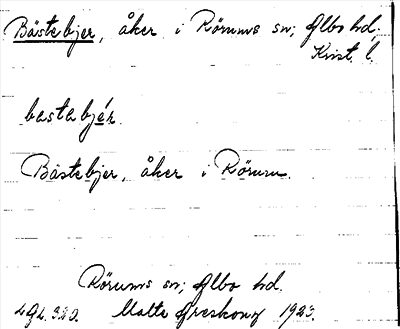 Bästebjer, åker i Rörums sn; Albo hd.
Krist. l.
bastabjér
Bästebjer, åker i Rörum.
Rörums sn; Albo hd.
Malte Areskoug 1923.